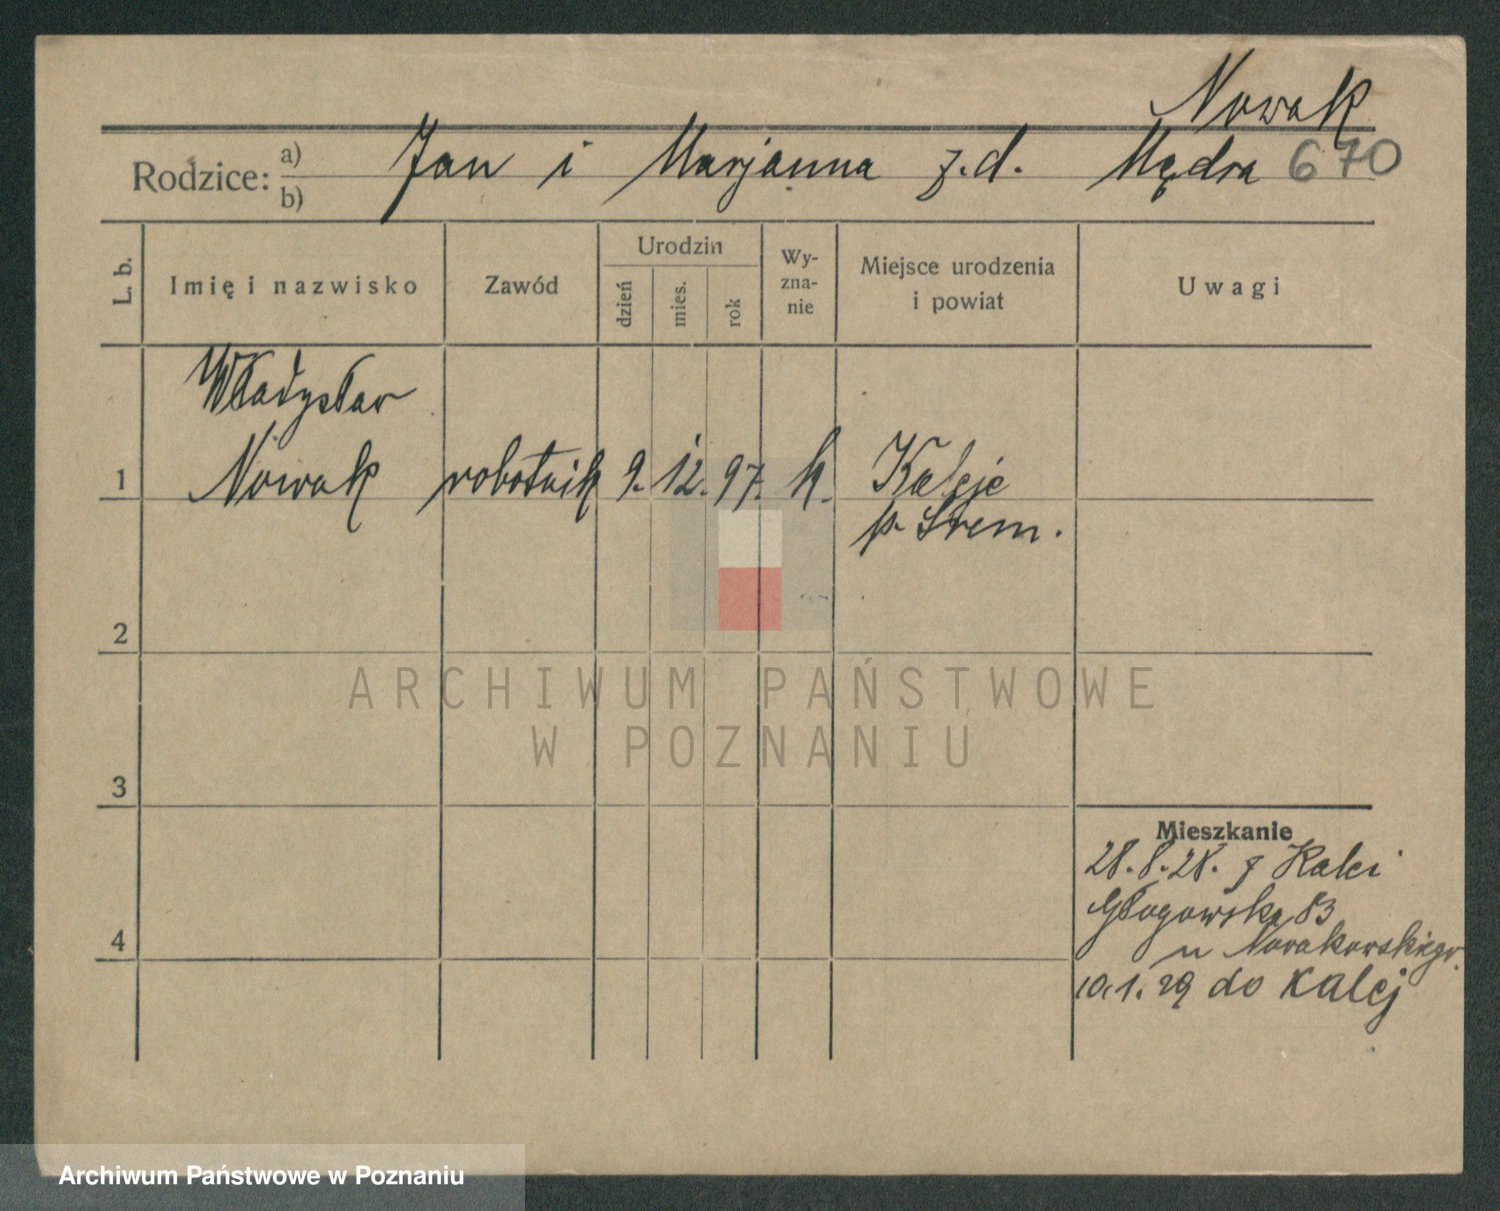 Nowak
Rodzice: a) b) Jan i Marjanna z.d. Mądra 670
L. b. Imię i nazwisko Zawód Urodzin dzień mies. rok Wy-zna-nie Miejsce urodzenia i powiat Uwagi
Władysław
1 Nowak robotnik 9. 12. 97. k. Kaleje
p. Śrem.
2
ARCHIWUM PAŃSTWOWE
W POZNANIU
3
Mieszkanie
28.8.28. z Kalei
Głogowska 83
4
u Nowakowskiego
10.1.29 do Kalej
Archiwum Państwowe w Poznaniu